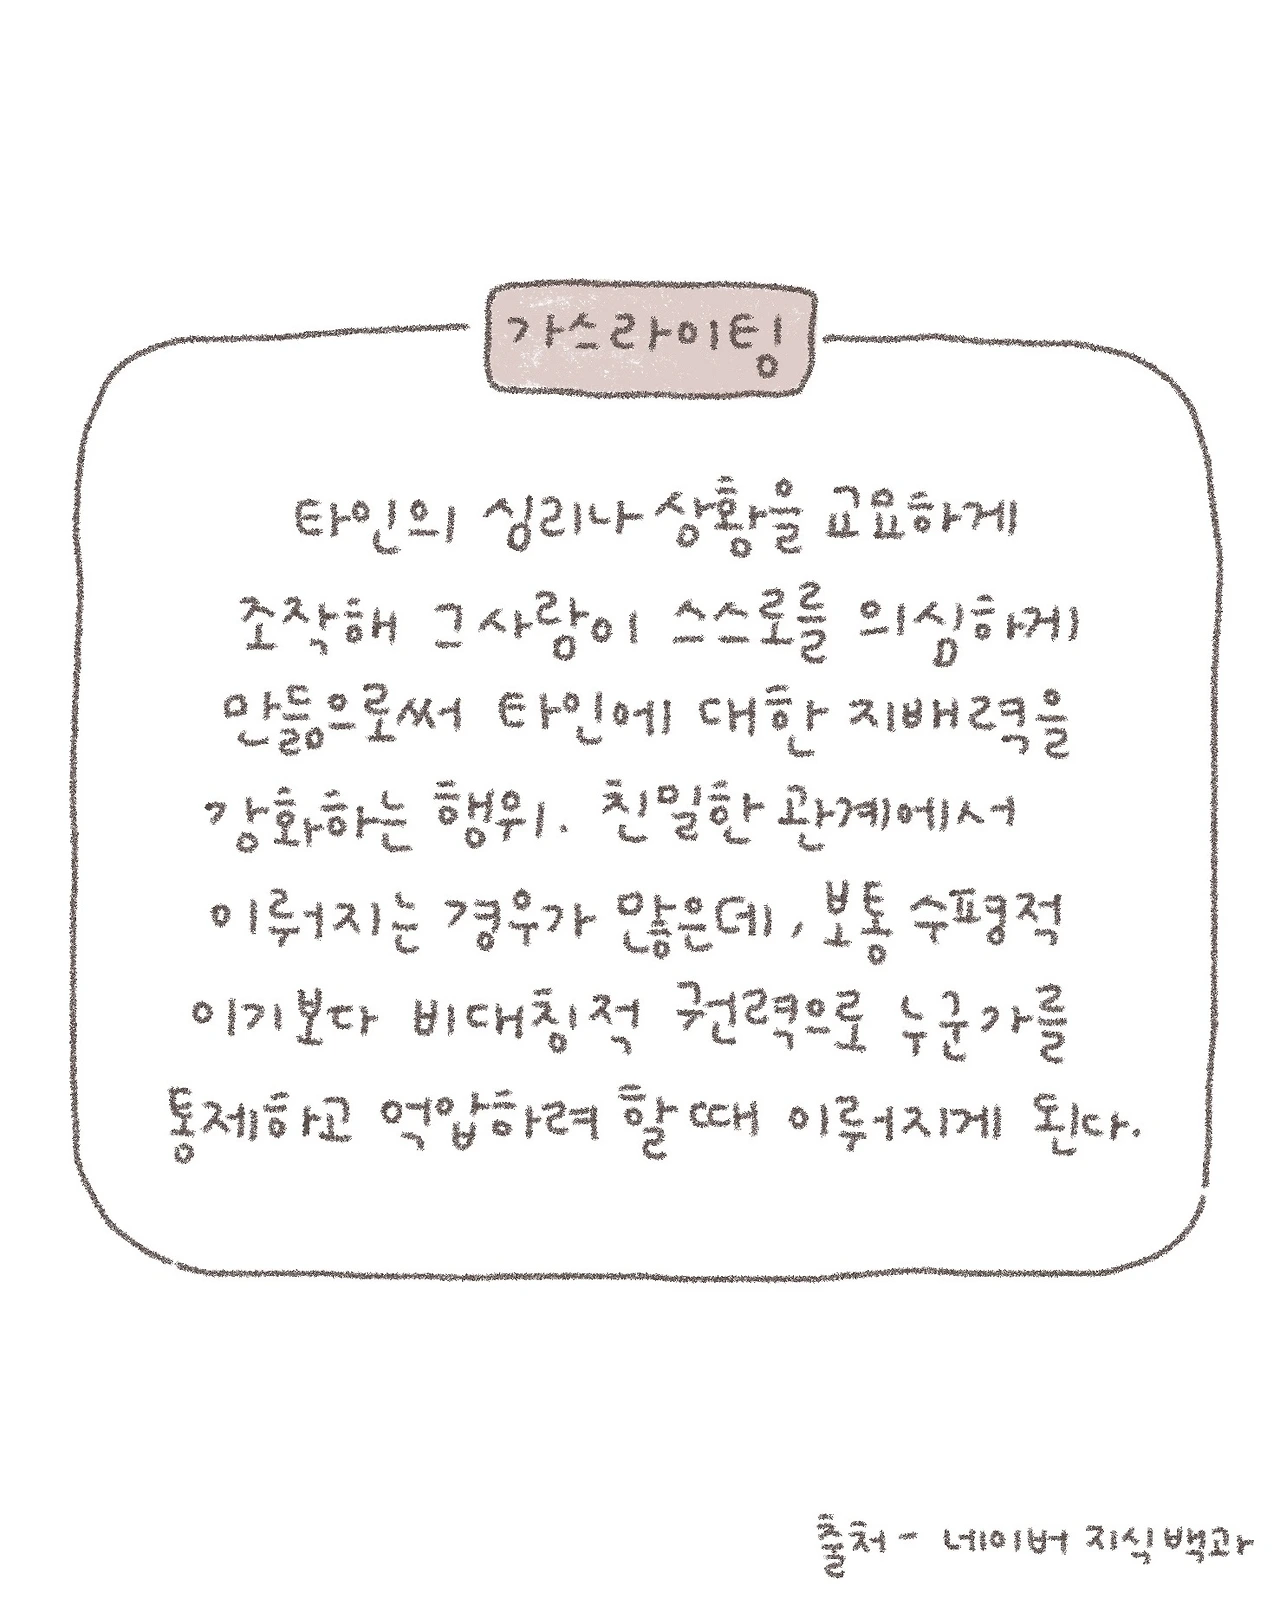 가스라이팅
타인의 심리나 상황을 교묘하게
조작해 그 사람이 스스로를 의심하게
만듦으로써 타인에 대한 지배력을
강화하는 행위. 친밀한 관계에서
이뤄지는 경우가 많은데, 보통 수평적
이기보다 비대칭적 권력으로 누군가를
통제하고 억압하려 할 때 이뤄지게 된다.
출처 - 네이버 지식백과